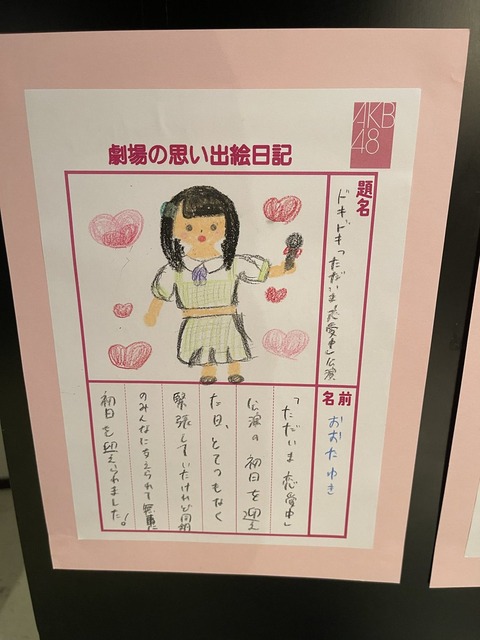 AKB
48
劇場の思い出絵日記
題名
ドキドキ「ただいま恋愛中」公演
名前
おおた ゆき
「ただいま恋愛中」
公演の初日を迎え
た日、とてつもなく
緊張していたけれど同期
のみんなに支えられて無事に
初日を迎えられました!